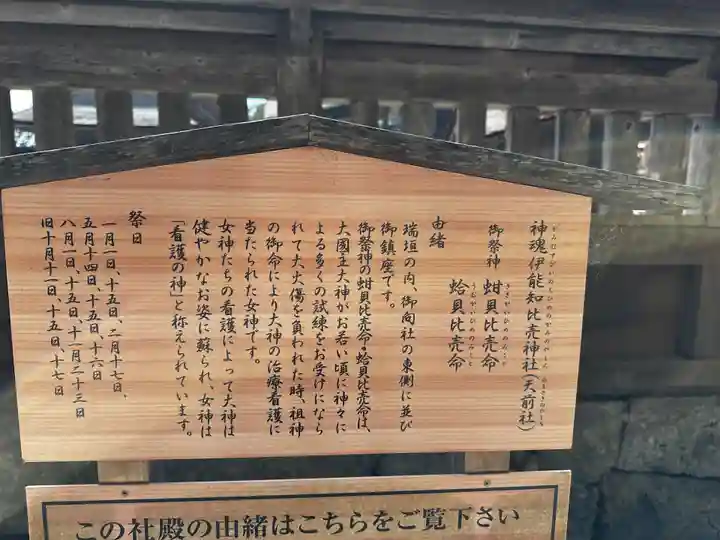 神魂伊能知比売神社(天前社)
御祭神 蚶貝比売命
蛤貝比売命
由緒
瑞垣の内、御向社の東側に並び
御鎮座です。
御祭神の蚶貝比売命・蛤貝比売命は、
大國主大神がお若い頃に神々に
よる多くの試練をお受けになら
れて大火傷を負われた時、祖神
の御命により大神の治療看護に
当たられた女神です。
女神たちの看護によって大神は
健やかなお姿に蘇られ、女神は
「看護の神」と称えられています。
祭日
一月一日、十五日、二月十七日、
五月十四日、十五日、十六日
八月一日、十五日、十一月二十三日
旧十月十一日、十五日、十七日
この社殿の由緒はこちらをご覧下さい